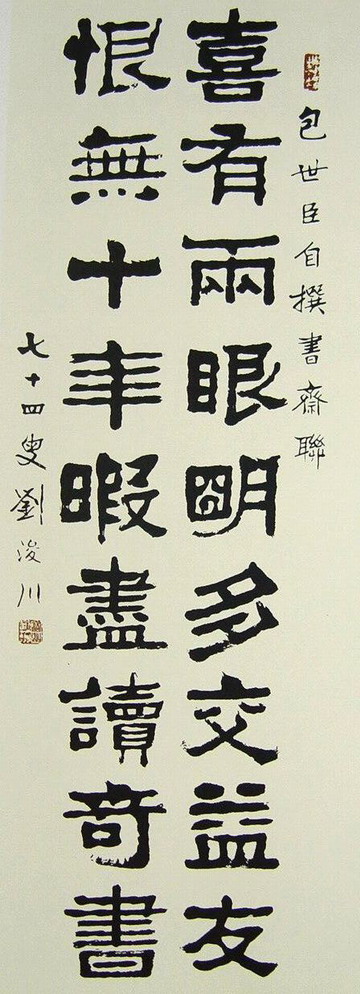 包世臣自撰書齋聯
喜有兩眼明多交益友
恨無十年暇盡讀奇書
七十四叟劉浚川